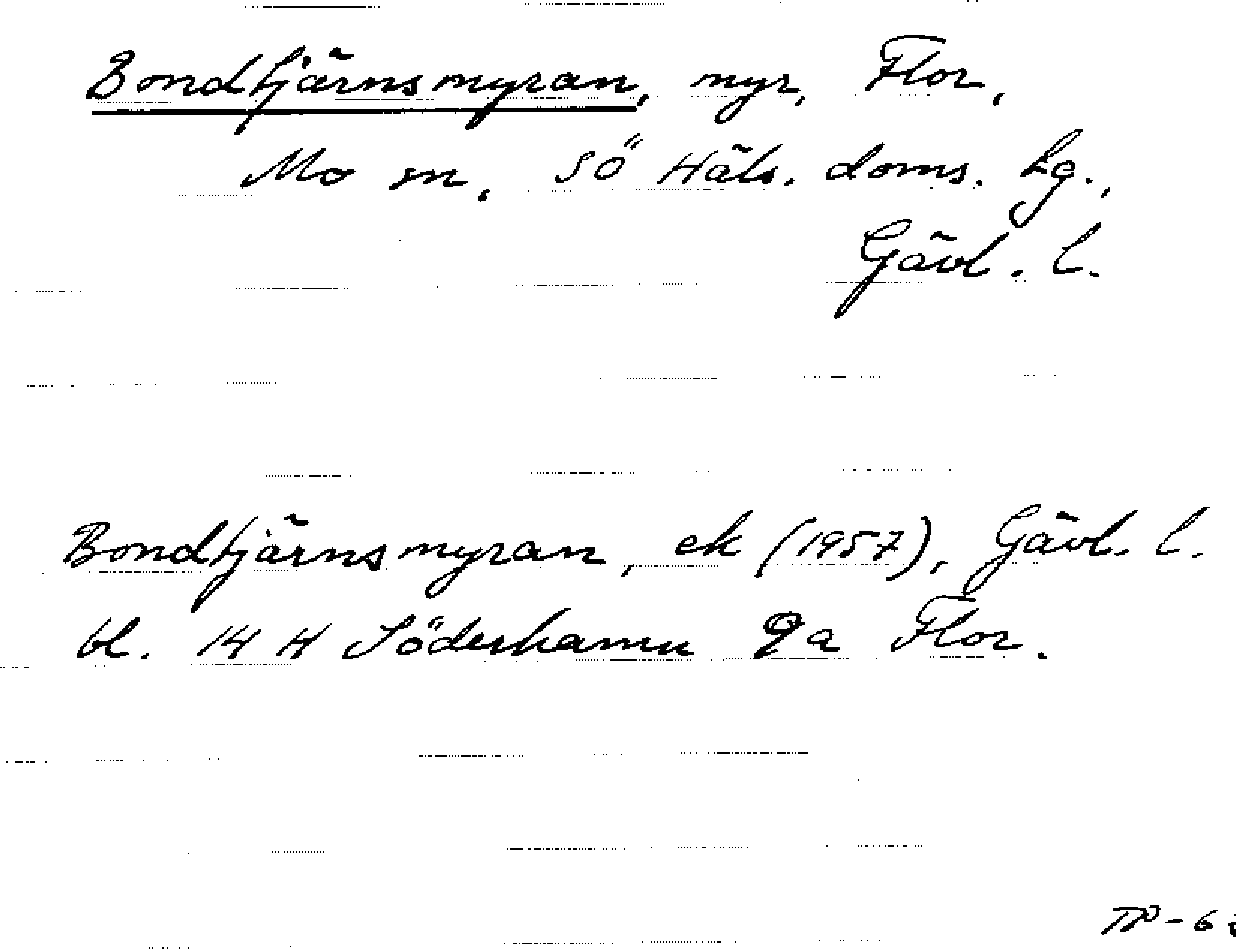 Bondtjärnsmyran, myr, Flor,
Mo sn, SÖ Häls. doms. hg.,
Gävl. l.
Bondtjärnsmyran, ek (1957), Gävl. l.
bl. 14 H Söderhamn 9a Flor.